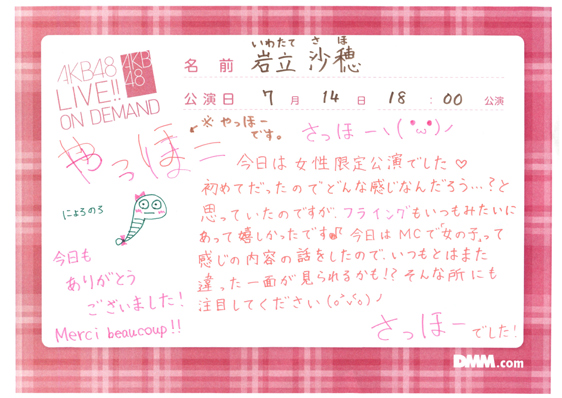 AKB48
LIVE!!
ON DEMAND
AKB
48
いわたて さほ
名前 岩立 沙穂
公演日 7月 14日 18:00 公演
※やっほー
です。
やっほー
さっほーヽ(*'ω')ノ
今日は女性限定公演でした♡
初めてだったのでどんな感じなんだろう…?と
思っていたのですが、フライングもいつもみたいに
あって嬉しかったです♪ 今日はMCで「女の子」って
感じの内容の話をしたので、いつもとはまた
違った一面が見られるかも!? そんな所にも
注目してください(o'∨'o)ノ
にょろのろ
今日も
ありがとう
ございました!
Merci beaucoup!!
さっほーでした!
DMM.com